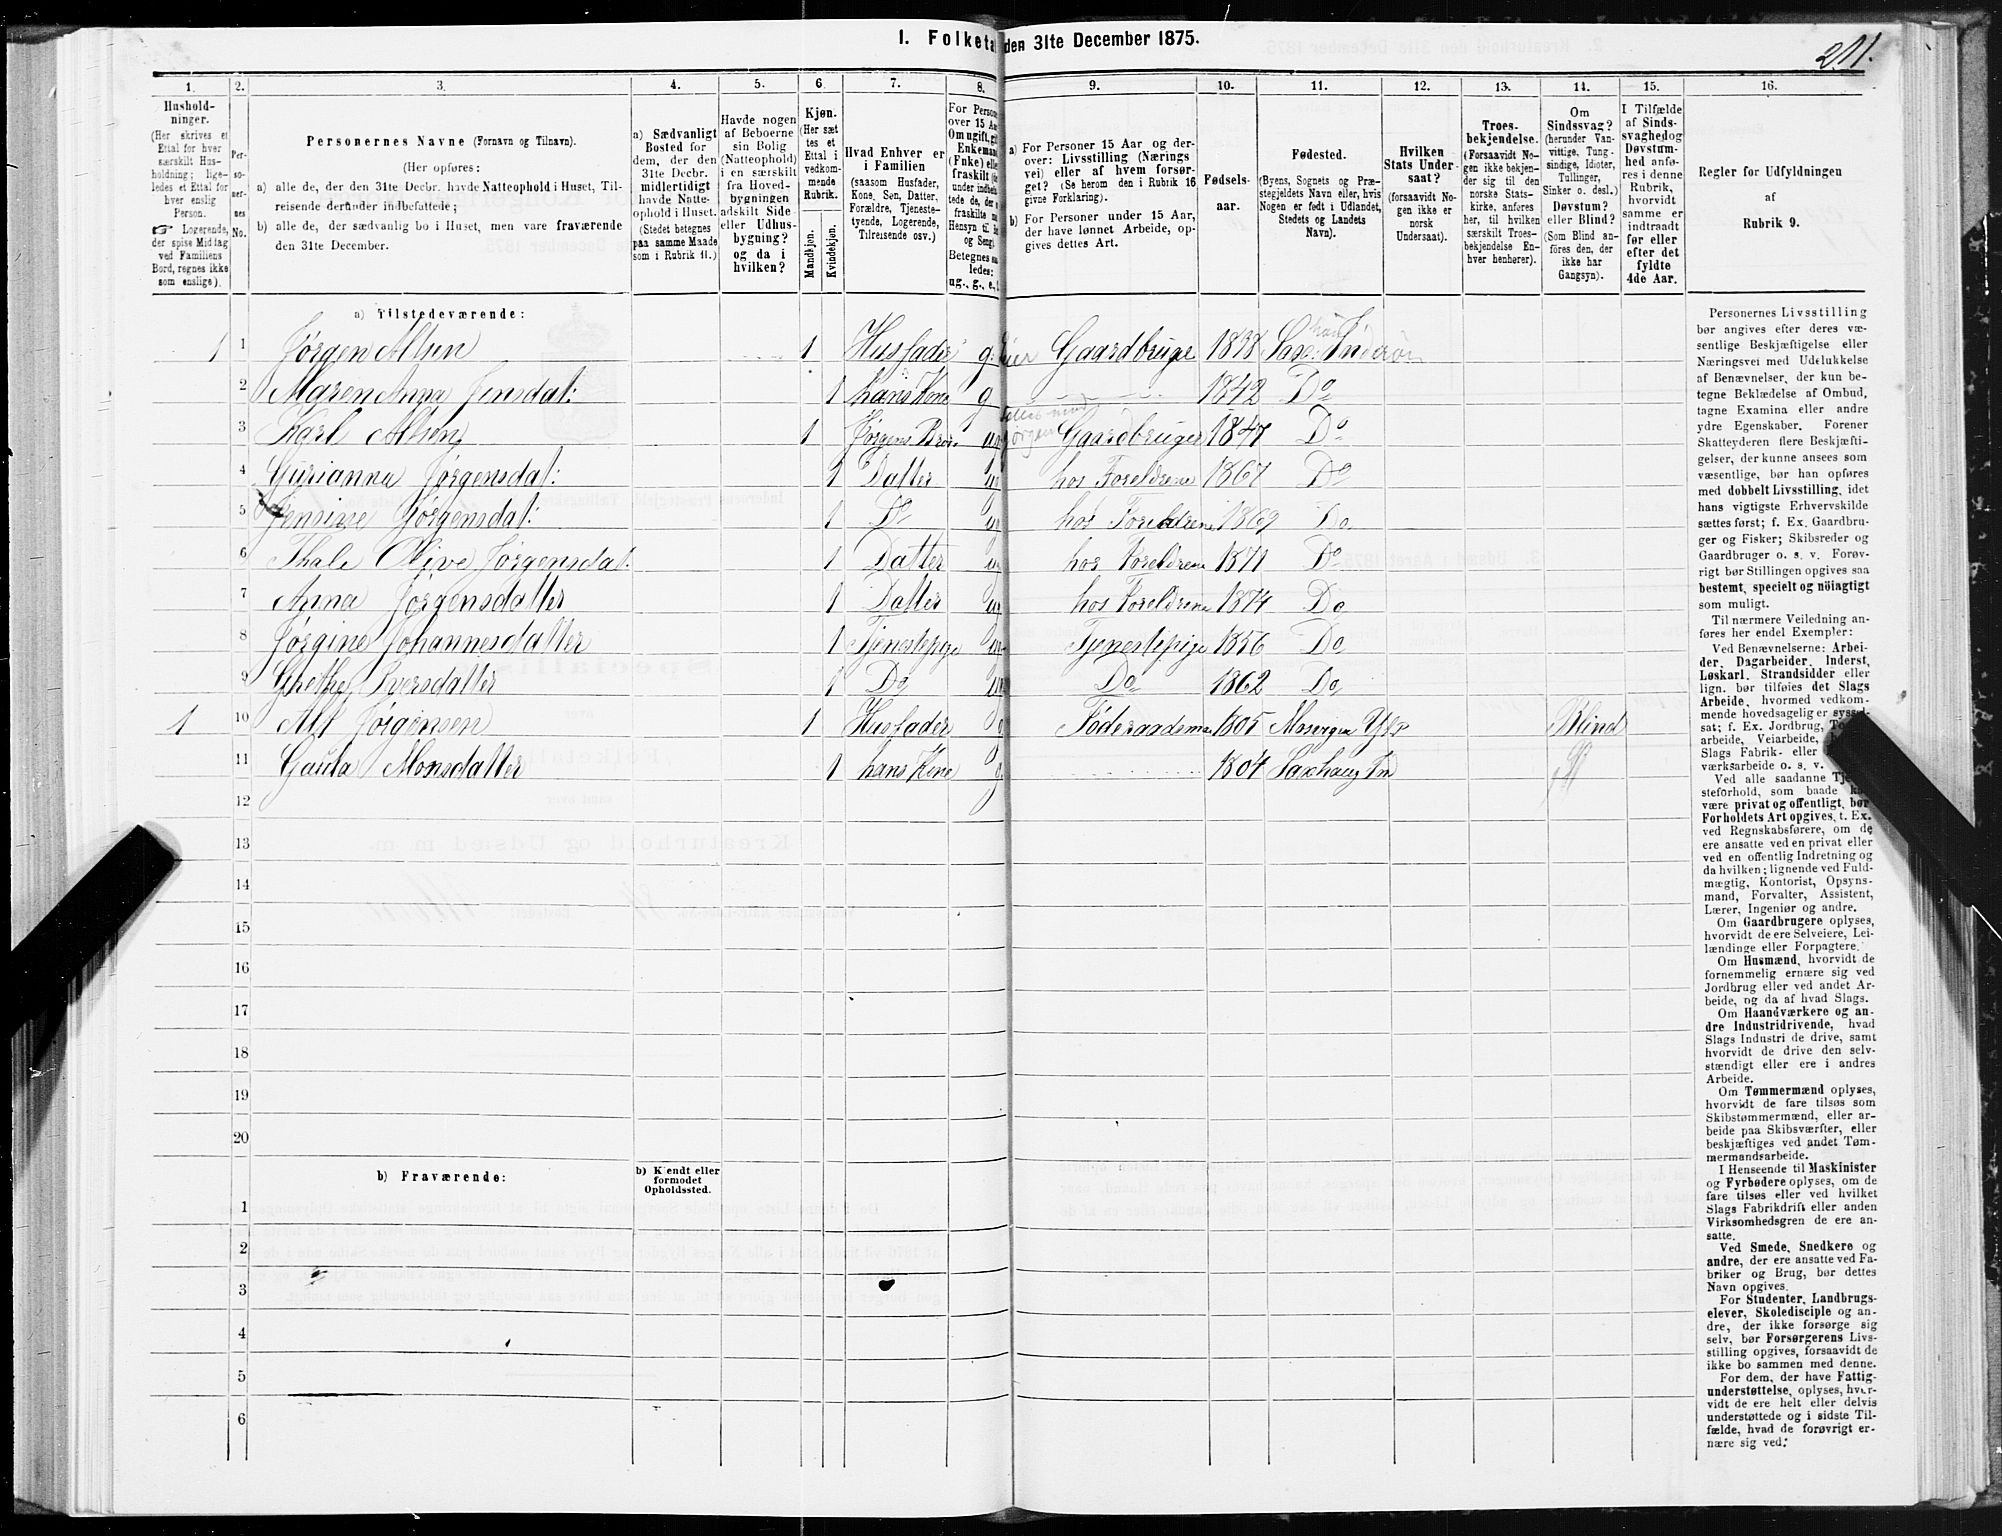 1. Folketæ den 31te December 1875.
211.
1. 2. 3. 4. 5. 6. 7. 8. 9. 10. 11. 12. 13. 14. 15. 16.
Hushold-
ninger.
(Her skrives et
Ettal for hver
særskilt Hus-
holdning; lige-
ledes et Ettal for
hver enslig
Person.
☞ Logerende,
der spise Middag
ved Familiens
Bord, regnes ikke
som enslige).
Per-
so-
ner-
nes
No.
Personernes Navne (Fornavn og Tilnavn).
(Her opføres:
a) alle de, der den 31te Decbr. havde Natteophold i Huset, Til-
reisende derunder indbefattede;
b) alle de, der sædvanlig bo i Huset, men vare fraværende
den 31te December.
a) Sædvanligt
Bosted for
dem, der den
31te Decbr.
midlertidigt
havde Natte-
ophold i Huset.
(Stedet betegnes
paa samme Maade
som i Rubrik 11.)
Havde nogen
af Beboerne
sin Bolig
(Natteophold)
i en særskilt
fra Hoved-
bygningen
adskilt Side-
eller Udhus-
bygning?
og da i
hvilken?
Kjøn.
(Her sæt-
tes et
Ettal i
vedkom-
mende
Rubrik.
Mandkjøn.
Kvindekjøn.
Hvad Enhver er
i Familien
(saasom Husfader,
Kone, Søn, Datter,
Forældre, Tjeneste-
tyende, Logerende,
Tilreisende osv.)
For Persone
over 15 Aa
Om ugift, gi
Enkeman
(Fnke) elle
fraskilt (h
under indbe
tede de, der e
fraskilte m
Hensyn til B
og Seng)
Betegnes sa
ledes:
ug., g., e., f
a) For Personer 15 Aar og der-
over: Livsstilling (Nærings
vei) eller af hvem forsør-
get? (Se herom den i Rubrik 16
givne Forklaring).
b) For Personer under 15 Aar,
der have lønnet Arbeide, op-
gives dettes Art.
Fødsels-
aar.
Fødested.
(Byens, Sognets og Præ-
stegjeldets Navn eller, hvis
Nogen er født i Udlandet,
Stedets og Landets
Navn).
Hvilken
Stats Under-
saat?
(forsaavidt No-
gen ikke er
norsk
Undersaat).
Troes-
bekjendelse.
(Forsaavidt No-
gen ikke bekjen-
der sig til den
norske Stats-
kirke, anføres
her, til hvilken
særskilt Troes-
bekjendelse En-
hver henhører).
Om
Sindssvag?
(herunder Van-
vittige, Tung-
sindige, Idioter,
Tullinger,
Sinker o. desl.)
Døvstum?
eller Blind?
(Som Blind an-
føres den, der
ikke har
Gangsyn).
I Tilfælde
af Sinds-
svaghed og
Døvstum-
hed anfø-
res i denne
Rubrik,
hvorvidt
samme er
indtraadt
før eller
efter det
fyldte
4de Aar.
Regler for Udfyldningen
af
Rubrik 9.
a) Tilstedeværende:
1 1 Jørgen Alsen 1 Husfader g. Gaardbruger 1838 Saxhaug Inderøn
2 Maren Anna Jensdat: 1 hans Kone g 1842 Do
3 Karl Alsen 1 Jørgens Bror ug Gaardbruger 1847 Do
4 Gurianna Jørgensdat: 1 Datter ug hos Foreldrene 1867 Do
5 Jensine Jørgensdat: 1 Do ug hos Foreldrene 1869 Do
6 Thale Olive Jørgensdat. 1 Datter ug hos Foreldrene 1871 Do
7 Anna Jørgensdatter 1 Datter ug hos Foreldrene 1874 Do
8 Jørgine Johannesdatter 1 Tjenestepige ug Tjenestepige 1856 Do
9 Grethe Iversdatter 1 Do ug Do 1862 Do
1 10 Alf Jørgensen 1 Husfader g Føderaadsma 1805 Mosvigen Yt Blind
11 Gauta Monsdatter 1 hans Kone g 1804 Saxhaug In
12
13
14
15
16
17
18
19
20
b) Fraværende:
b) Kjendt eller
formodet
Opholdssted.
1
2
3
4
5
6
Personernes Livsstilling
bør angives efter deres væ-
sentlige Beskjæftigelse eller
Næringsvei med Udelukkelse
af Benævnelser, der kun be-
tegne Beklædelse af Ombud,
tagne Examina eller andre
ydre Egenskaber. Forener
Skatteyderen flere Beskjæfti-
gelser, der kunne ansees som
væsentlige, bør han opføres
med dobbelt Livsstilling, idet
hans vigtigste Erhvervskilde
sættes først; f. Ex. Gaardbru-
ger og Fisker; Skibsreder og
Gaardbruger o. s. v. Forøv-
rigt bør Stillingen opgives saa
bestemt, specielt og nöiagtigt
som muligt.
Til nærmere Veiledning an-
føres her endel Exempler:
Ved Benævnelserne: Arbei-
der, Dagarbeider, Inderst,
Løskarl, Strandsidder eller
lign. bør tilføies det Slags
Arbeide, hvormed vedkom-
mende hovedsagelig er syssel-
sat; f. Ex. Jordbrug, To
arbeide, Veiarbeide,
Slags Fabrik- eller
værksarbeide o. s. v.
Ved alle saadanne Tje
steforhold, som baade ka
være privat og offentligt, bør
Forholdets Art opgives, t. Ex.
ved Regnskabsførere, om de
ere ansatte ved en privat eller
ved en offentlig Indretning og
da hvilken; lignende ved Fuld-
mægtig, Kontorist, Opsyns-
mand, Forvalter, Assistent,
Lærer, Ingeniør og andre.
Om Gaardbrugere oplyses,
hvorvidt de ere Selveiere, Lei-
lændinge eller Forpagtere.
Om Husmænd, hvorvidt de
fornemmelig ernære sig ved
Jordbrug eller ved andet Ar-
beide, og da af hvad Slags.
Om Haandværkere og an-
dre Industridrivende, hvad
Slags Industri de drive, samt
hvorvidt de drive den selv-
stændigt eller ere i andres
Arbeide.
Om Tømmermænd oplyses,
hvorvidt de fare tilsøs som
Skibstømmermænd, eller ar-
beide paa Skibsværfter, eller
beskjæftiges ved andet Tøm-
mermandsarbeide.
I Henseende til Maskinister
og Fyrbødere oplyses, om de
fare tilsøs eller ved hvilket
Slags Fabrikdrift eller anden
Virksomhedsgren de ere an-
satte.
Ved Smede, Snedkere og
andre, der ere ansatte ved Fa-
briker og Brug, bør dettes
Navn opgives.
For Studenter, Landbrugs-
elever, Skoledisciple og an-
dre, der ikke forsørge sig
selv, bør Forsørgerens Livs-
stilling opgives, forsaavidt de
ikke bo sammen med denne.
For dem, der have Fattig-
understøttelse, oplyses, hvor-
vidt de ere helt eller delvis
understøttede og i sidste Til-
fælde, hvad de forøvrigt er-
nære sig ved.